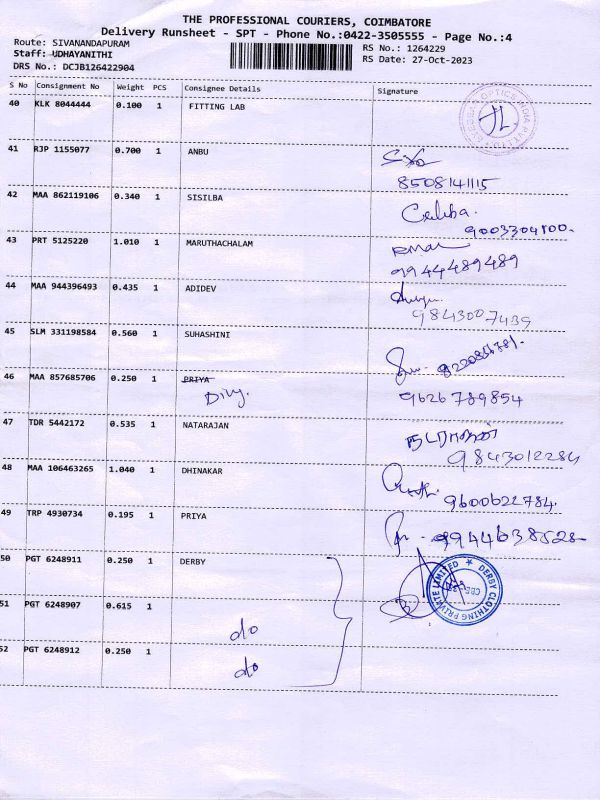 THE PROFESSIONAL COURIERS, COIMBATORE
Delivery Runsheet - SPT - Phone No.:0422-3505555 - Page No.:4
Route: SIVANANDAPURAM
RS No.: 1264229
Staff: UDHAYANITHI
RS Date: 27-Oct-2023
DRS No.: DCJB126422904
S No Consignment No Weight PCS Consignee Details Signature
40 KLK 8044444 0.100 1 FITTING LAB
41 RJP 1155077 0.700 1 ANBU
8508141115
42 MAA 862119106 0.340 1 SISILBA
9003304800.
43 PRT 5125220 1.010 1 MARUTHACHALAM
9944489489
44 MAA 944396493 0.435 1 ADIDEV
9843007439
45 SLM 331198584 0.560 1 SUHASHINI
46 MAA 857685706 0.250 1 PRIYA
Divy.
9626789854
47 TDR 5442172 0.535 1 NATARAJAN
நடராஜன்
9843012284
48 MAA 106463265 1.040 1 DHINAKAR
9600622784.
49 TRP 4930734 0.195 1 PRIYA
9944638528
50 PGT 6248911 0.250 1 DERBY
DERBY CLOTHING PRIVATE LIMITED
51 PGT 6248907 0.615 1
do
52 PGT 6248912 0.250 1
do